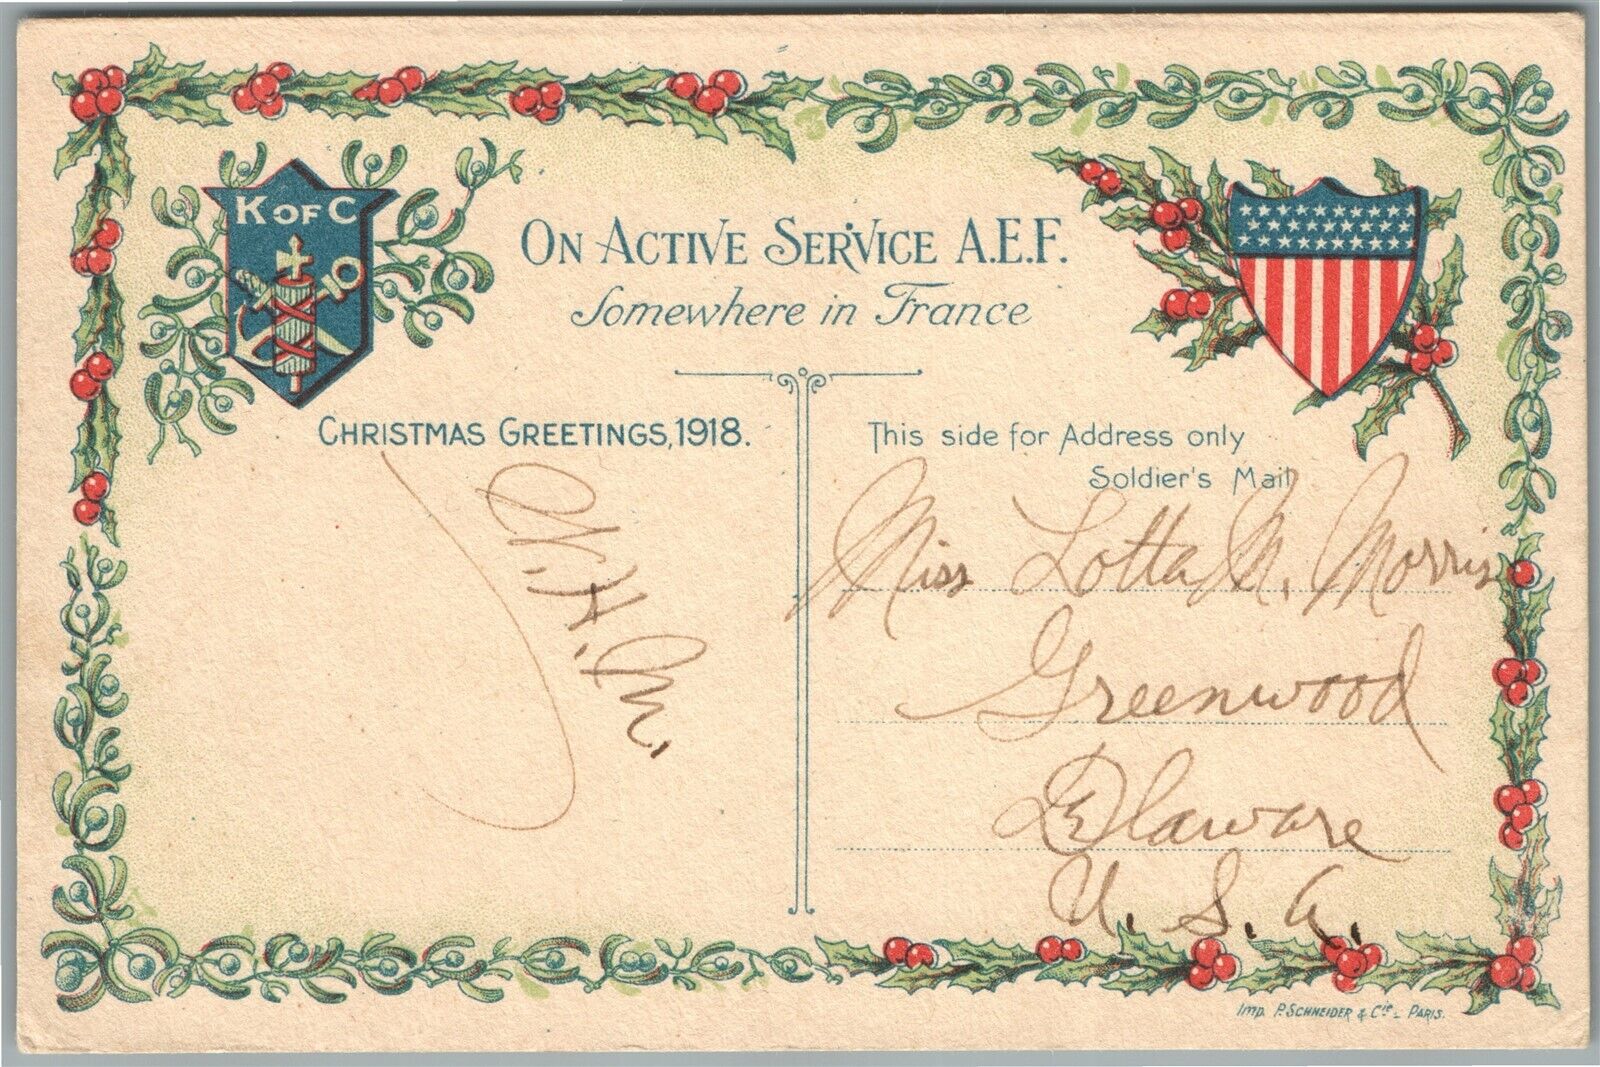 K OF C
ON ACTIVE SERVICE A.E.F.
Somewhere in France
CHRISTMAS GREETINGS, 1918.
This side for Address only
Soldier's Mail
H. M.
Miss Lotta M. Morris
Greenwood
Delaware
U. S. A.
Imp. P. SCHNEIDER & Cie - PARIS.